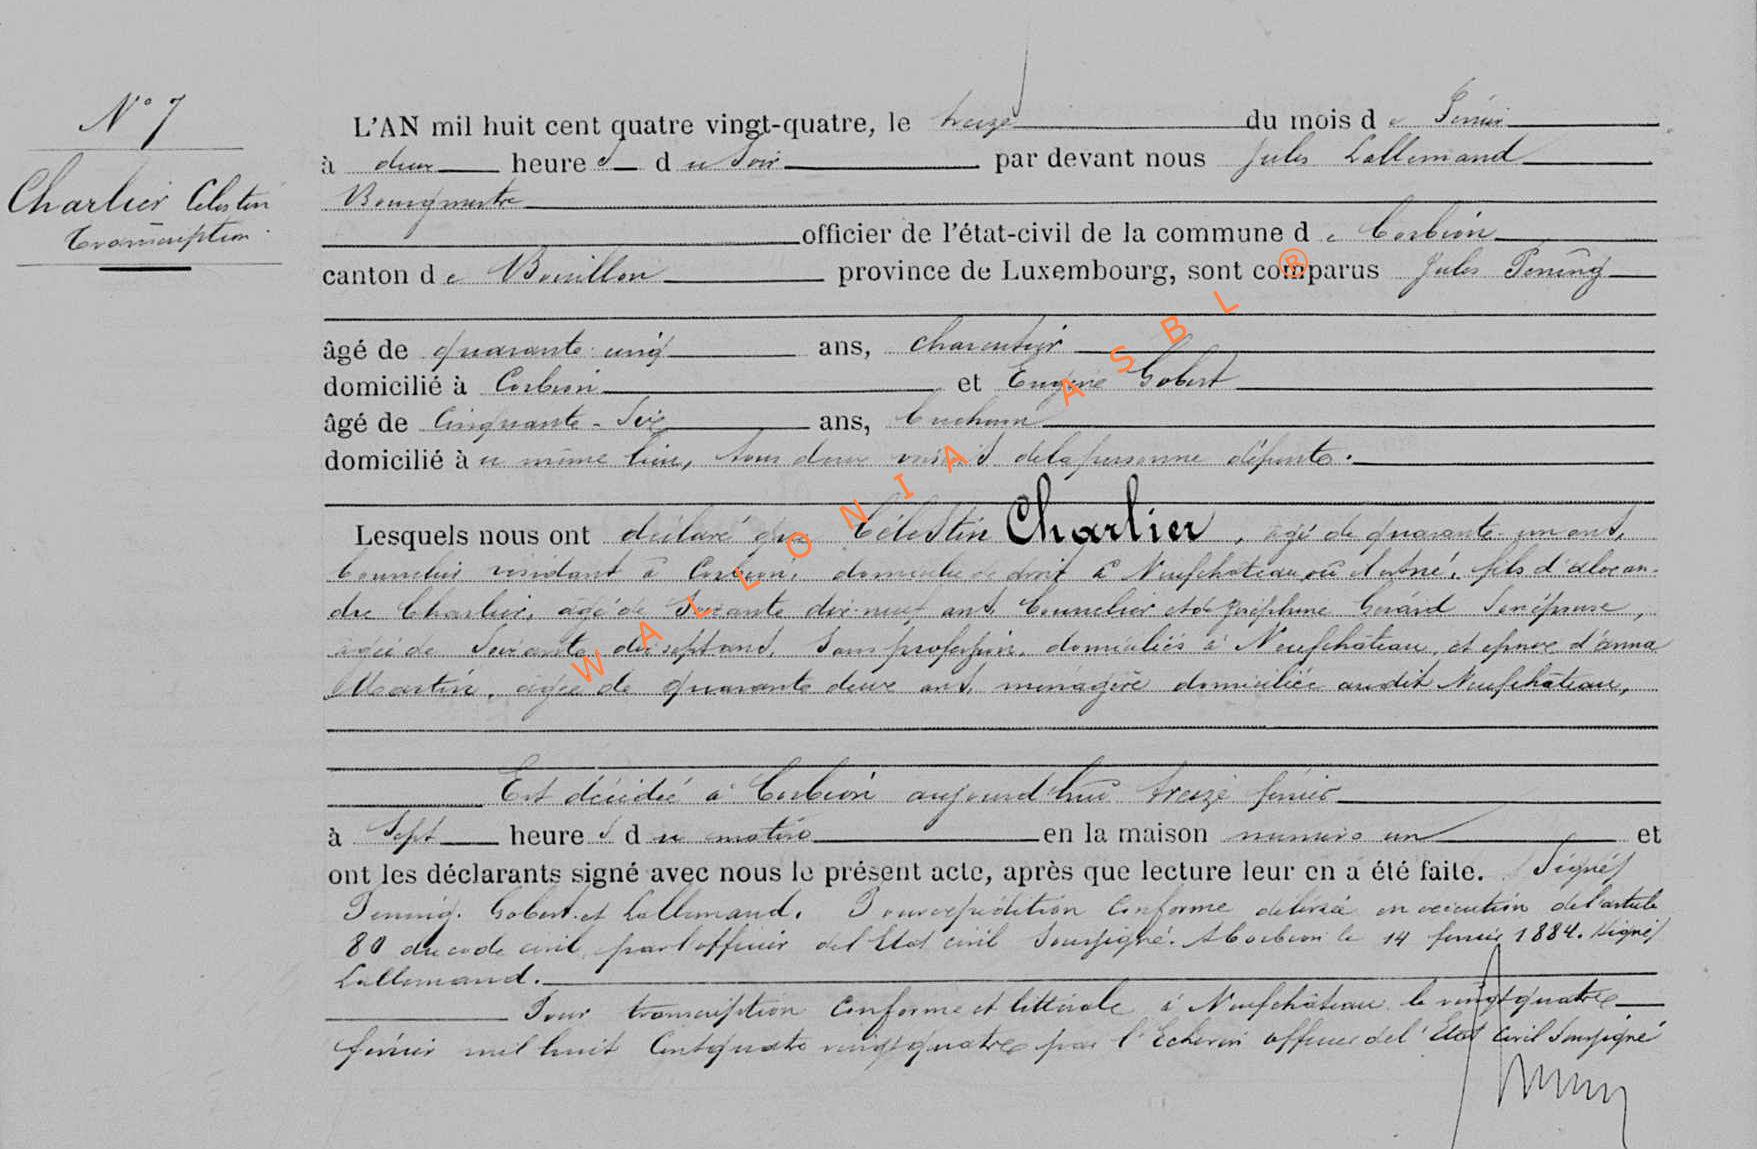 N° 7
Charlier Célestin
Transcription
L'AN mil huit cent quatre vingt-quatre, le treize du mois de Février
à deux heures du Soir par devant nous Jules Lallemand
Bourgmestre
officier de l'état-civil de la commune de Corbion
canton de Bouillon province de Luxembourg, sont comparus Jules
âgé de quarante cinq ans,
domicilié à Corbion et Eugène Gobert
âgé de Cinquante-Six ans,
domicilié au même lieu, tous deux voisins de la personne défunte.
Lesquels nous ont déclaré que Célestin Charlier, âgé de quarante-un ans,
Tonnelier résidant à Corbion, domicilié de droit à Neufchâteau où il est né, fils d'Alexan-
dre Charlier, âgé de Soixante dix-neuf ans, Tonnelier et de Joséphine Gérard Son épouse,
âgée de Soixante dix sept ans, Sans profession, domiciliés à Neufchâteau, et époux d'anna
Martin, âgée de quarante deux ans, ménagère domiciliée audit Neufchâteau,
Est décédé à Corbion aujourd'hui treize février
à Sept heures du matin en la maison numero un et
ont les déclarants signé avec nous le présent acte, après que lecture leur en a été faite. Signés/
Gobert et Lallemand. Pour expédition Conforme délivrée en exécution de l'article
80 du code civil, par l'officier de l'Etat civil Soussigné. A Corbion le 14 février 1884. Signé/
Lallemand.
Pour transcription Conforme et littérale à Neufchâteau le vingt quatre
février mil huit Cent quatre vingt quatre par l'Echevin officier de l'Etat Civil Soussigné
WALLONIA ASBL ®